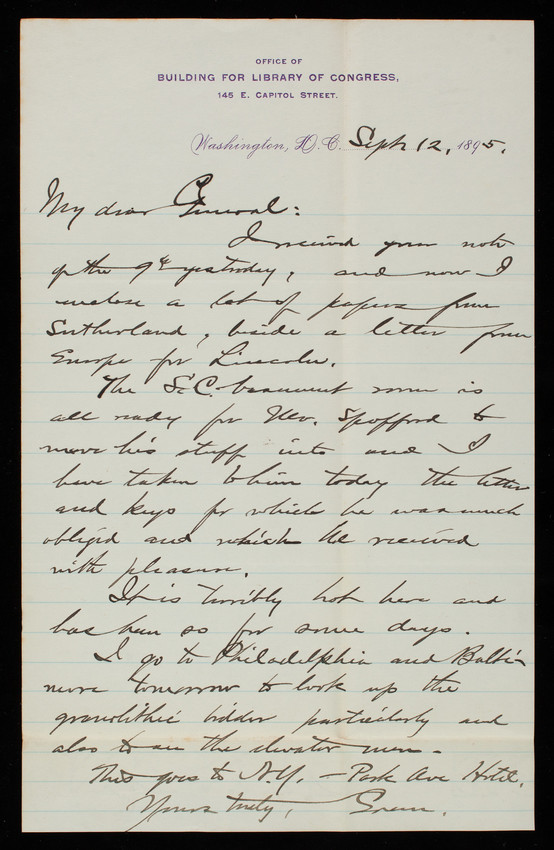 OFFICE OF
BUILDING FOR LIBRARY OF CONGRESS,
145 E. CAPITOL STREET.
Washington, D.C. Sept 12, 1895.
My dear General:
I received your note
of the 9th yesterday, and now I
enclose a lot of papers from
Sutherland, beside a letter from
Europe for Lincoln.
The S.C. basement room is
all ready for Mr. Spofford to
move his stuff into and I
have taken to him today the letter
and keys for which he was much
obliged and which he received
with pleasure.
It is terribly hot here and
has been so for some days.
I go to Philadelphia and Balti-
more tomorrow to look up the
granolithic bidder particularly and
also to see the elevator men.
This goes to N.Y. - Park Ave Hotel.
Yours truly, Green.